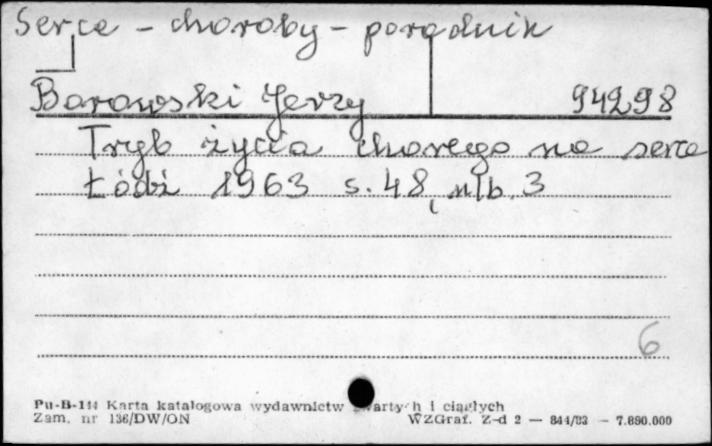 Serce - choroby - poradnik
Borowski Jerzy 94298
Tryb życia chorego na serce
Łódź 1963 s. 48, nlb. 3
6
Pu-B-114 Karta katalogowa wydawnictw zwartych i ciągłych
Zam. nr 136/DW/ON WZGraf. Z-d 2 — 844/83 — 7.890.000